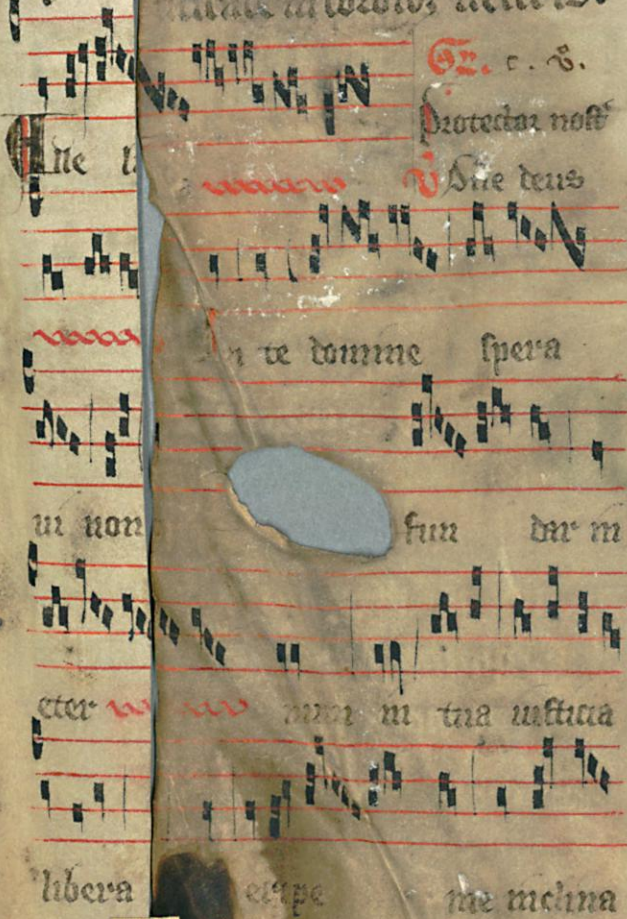 Gr. c. v.
Protector nost
Alle l
v Dne deus
In te domine spera
ui non fun dar in
eter num in tua iusticia
libera eripe me inclina